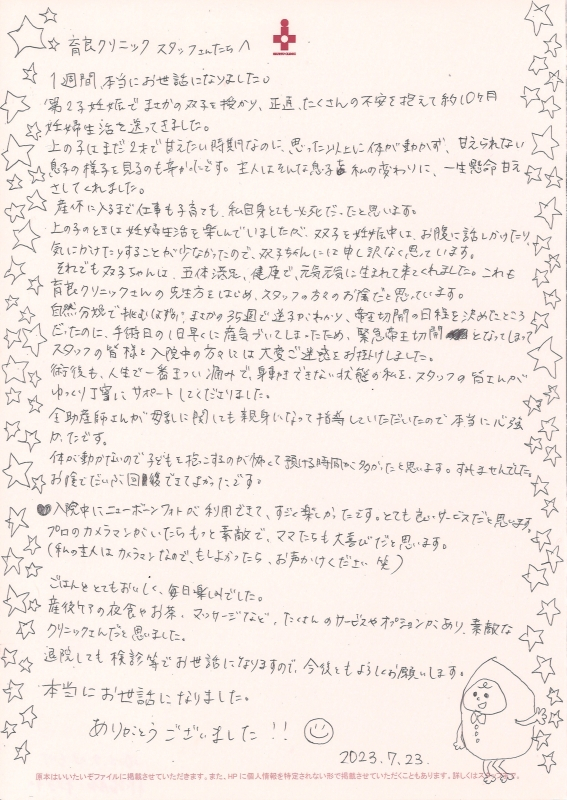 育良クリニック スタッフさんたちへ
1週間、本当にお世話になりました。
第2子妊娠でまさかの双子を授かり、正直、たくさんの不安を抱えて約10ヶ月
妊婦生活を送ってきました。
上の子はまだ2才で甘えたい時期なのに、思った以上に体が動かず、甘えられない
息子の様子を見るのも辛かったです。主人はそんな息子を私の変わりに、一生懸命甘え
させてくれました。
産休に入るまで仕事も子育ても、私自身とても必死だったと思います。
上の子のときは妊婦生活を楽しんでいましたが、双子を妊娠中は、お腹に話しかけたり、
気にかけたりすることが少なかったので、双子ちゃんには申し訳なく思っています。
それでも双子ちゃんは、五体満足、健康で、元気元気に生まれて来てくれました。これも
育良クリニックさんの先生方をはじめ、スタッフの方々のお陰だと思っています。
自然分娩で挑むはずが、まさかの35週で逆子がわかり、帝王切開の日程を決めたところ
だったのに、手術日の1日早くに産気づいてしまったため、緊急帝王切開となってしまって
スタッフの皆様と入院中の方々には大変ご迷惑をお掛けしました。
術後も、人生で一番きつい痛みで、身動きできない状態の私を、スタッフの皆さんが
ゆっくり丁寧にサポートしてくださりました。
全助産師さんが母乳に関しても親身になって指導していただいたので本当に心強
かったです。
体が動かないので子どもを抱っこするのが怖くて預ける時間が多かったと思います。すみませんでした。
お陰でだいぶ回復できてよかったです。
♥入院中にニューボーンフォトが利用できて、すごく楽しかったです。とても良いサービスだと思います。
プロのカメラマンがいたらもっと素敵で、ママたちも大喜びだと思います。
(私の主人はカメラマンなので、もしよかったら、お声かけください 笑)
ごはんもとてもおいしく、毎日楽しみでした。
産後ケアの夜食やお茶、マッサージなど、たくさんのサービスやオプションがあり、素敵な
クリニックさんだと思いました。
退院しても検診等でお世話になりますので、今後ともよろしくお願いします。
本当にお世話になりました。
ありがとうございました!!
2023.7.23.
原本はいいたいぞファイルに掲載させていただきます。また、HPに個人情報を特定されない形で掲載させていただくこともあります。詳しくはスタッフまで。